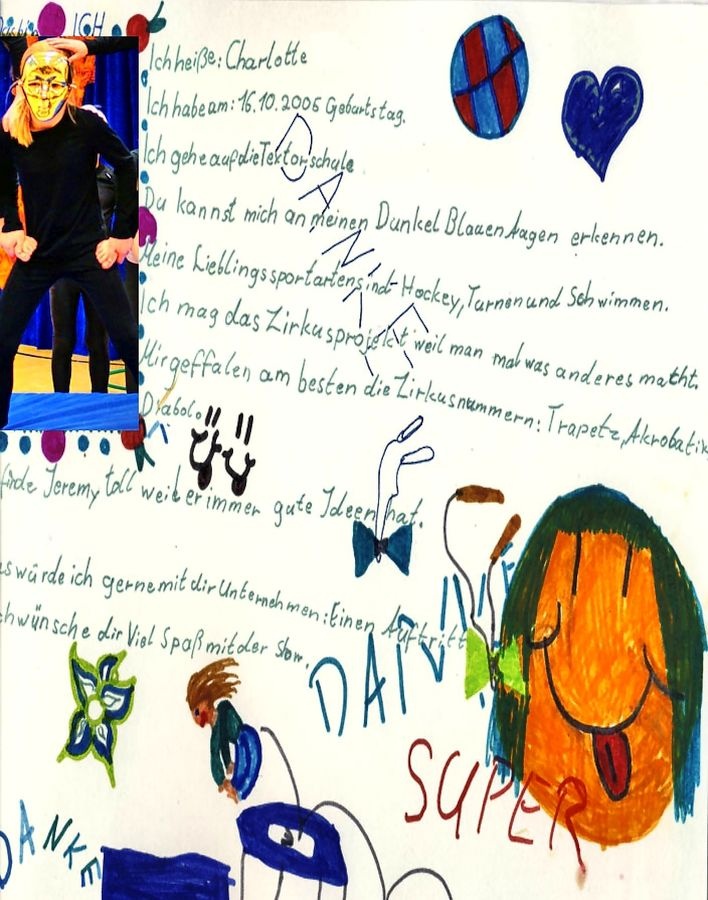 ICH
Ich heiße: Charlotte
Ich habe am: 16.10.2005 Geburtstag.
Ich gehe auf die Textorschule
DANKE
Du kannst mich an meinen Dunkel Blauen Augen erkennen.
Meine Lieblingssportarten sind Hockey, Turnen und Schwimmen.
Ich mag das Zirkusprojekt weil man mal was anderes macht.
Mir geffalen am besten die Zirkusnummern: Trapetz, Akrobatik
Diabolo
finde Jeremy toll weil er immer gute Ideen hat.
würde ich gerne mit dir Unternehmen: Einen Auftritt
wünsche dir Viel Spaß mit der Show.
SUPER
DANKE